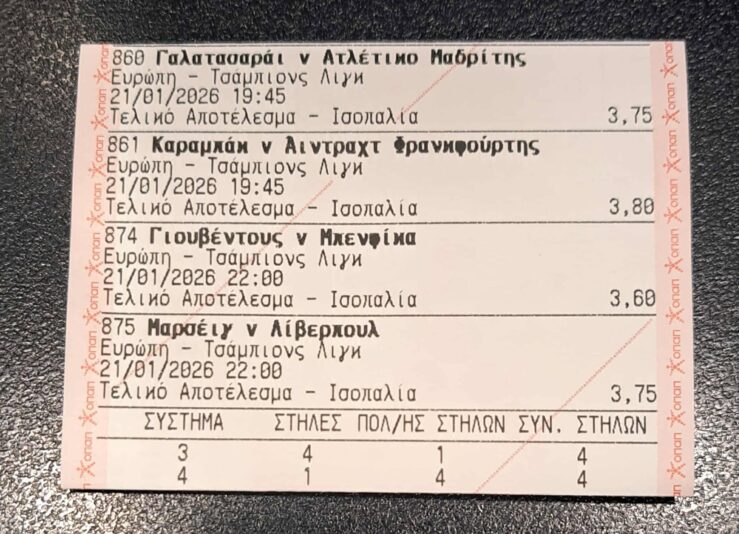 860 Γαλατασαράι v Ατλέτικο Μαδρίτης
Ευρώπη - Τσάμπιονς Λιγκ
21/01/2026 19:45
Τελικό Αποτέλεσμα - Ισοπαλία 3,75
861 Καραμπάκ v Άιντραχτ Φρανκφούρτης
Ευρώπη - Τσάμπιονς Λιγκ
21/01/2026 19:45
Τελικό Αποτέλεσμα - Ισοπαλία 3,80
874 Γιουβέντους v Μπενφίκα
Ευρώπη - Τσάμπιονς Λιγκ
21/01/2026 22:00
Τελικό Αποτέλεσμα - Ισοπαλία 3,60
875 Μαρσέιγ v Λίβερπουλ
Ευρώπη - Τσάμπιονς Λιγκ
21/01/2026 22:00
Τελικό Αποτέλεσμα - Ισοπαλία 3,75
ΣΥΣΤΗΜΑ ΣΤΗΛΕΣ ΠΟΛ/ΗΣ ΣΤΗΛΩΝ ΣΥΝ. ΣΤΗΛΩΝ
3 4 1 4
4 1 4 4
οπαπ